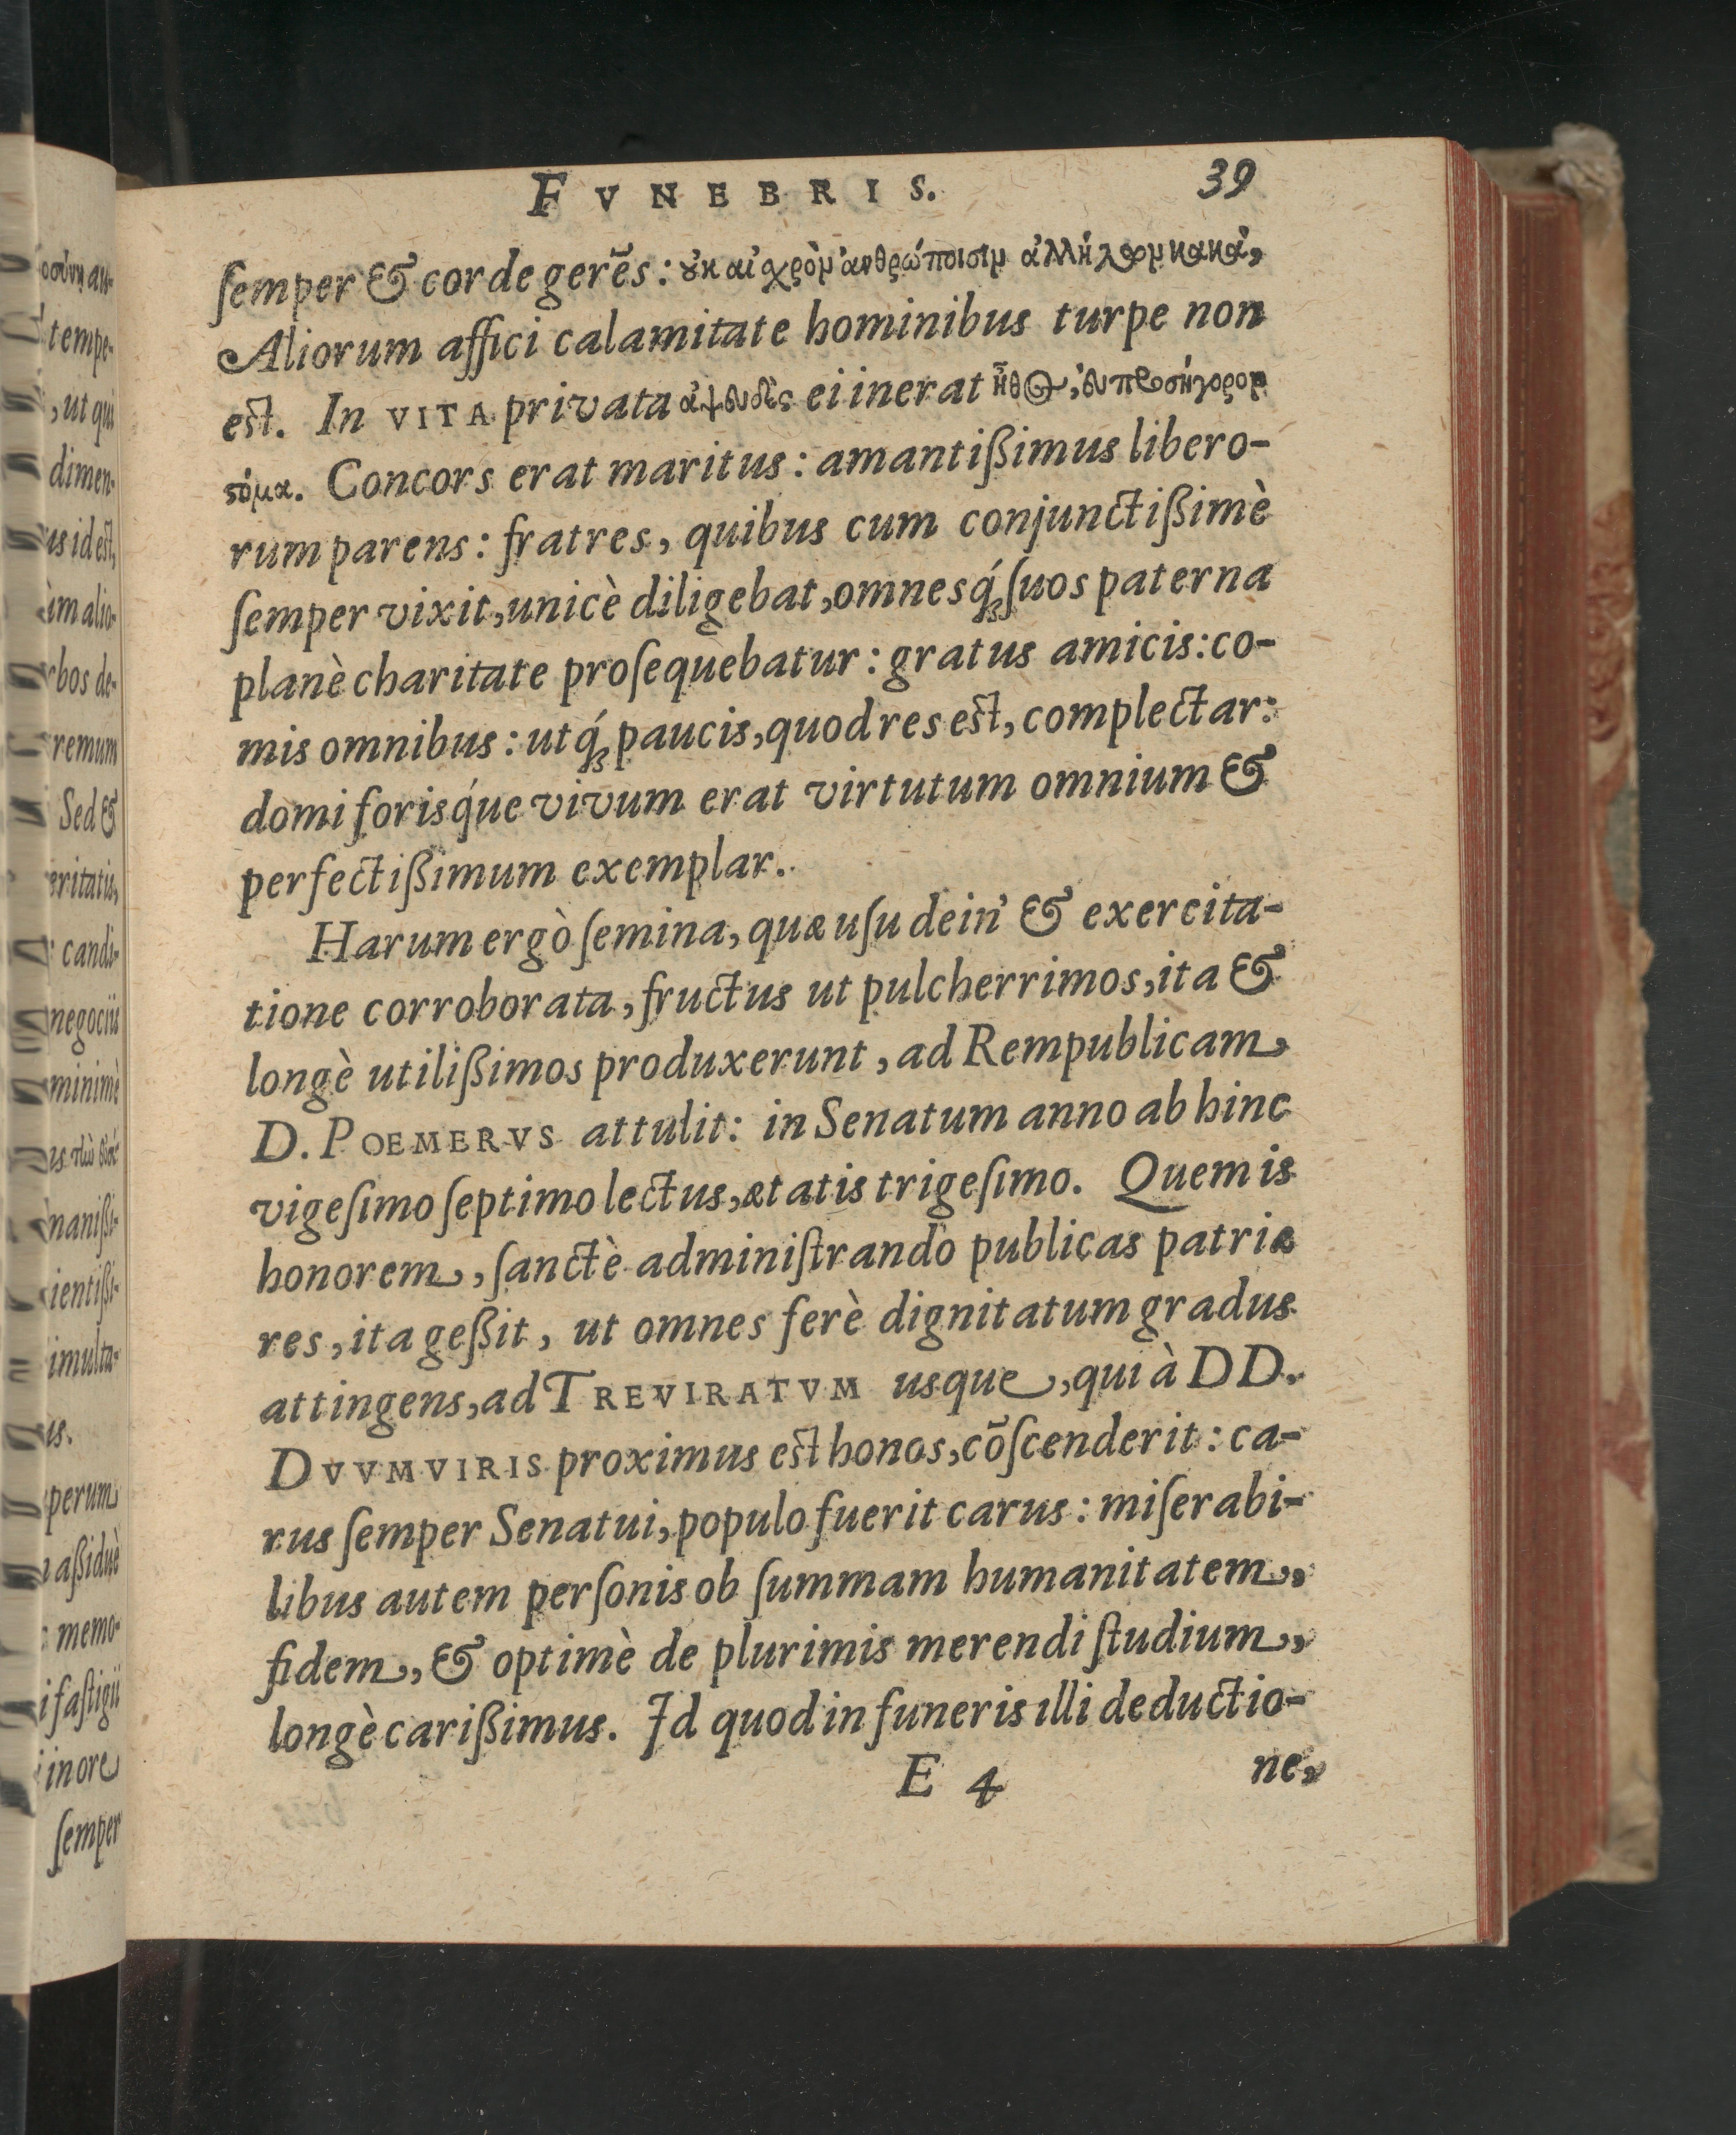 FVNEBRIS. 39
ſemper & corde gerẽs: ȣ̓κ αἰχρὸν ἀνθρώποισιν ἀλλήλων κακὰ,
Aliorum affici calamitate hominibus turpe non
est. In VITA privata ἀψευδὲς ei inerat ἦθος, ἐυπροσήγορον
ϛόμα. Concors erat maritus: amantißimus libero-
rum parens: fratres, quibus cum conjunctißimè
ſemper vixit, unicè diligebat, omnesq́ꝫ ſuos paterna
planè charitate proſequebatur: gratus amicis: co-
mis omnibus: utq́ꝫ paucis, quod res est, complectar:
domi forisq́ue vivum erat virtutum omnium &
perfectißimum exemplar.
Harum ergò ſemina, quæ uſu dein' & exercita-
tione corroborata, fructus ut pulcherrimos, ita &
longè utilißimos produxerunt, ad Rempublicam
D. POEMERVS attulit: in Senatum anno ab hinc
vigeſimo ſeptimo lectus, ætatis trigeſimo. Quem is
honorem, ſanctè adminiſtrando publicas patriæ
res, ita geßit, ut omnes ferè dignitatum gradus
attingens, ad TREVIRATVM usque, qui à DD.
DVVMVIRIS proximus est honos, cõſcenderit: ca-
rus ſemper Senatui, populo fuerit carus: miſerabi-
libus autem perſonis ob ſummam humanitatem,
fidem, & optimè de plurimis merendi ſtudium,
longè carißimus. Id quod in funeris illi deductio-
E 4 ne,